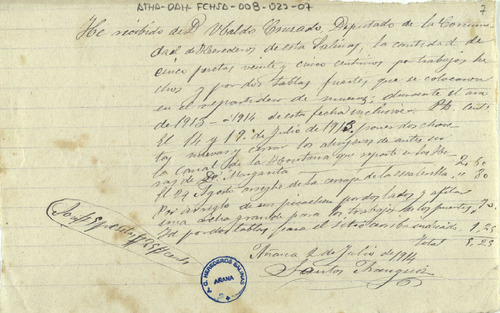 ATHA-DAH-FCHSA-008-023-07
7
He recibido de D. Ubaldo Cruzado, Diputado de la Comuni
dad de Herederos de esta Salinas, la cantidad de
cinco pesetas veinte y cinco centimos por trabajos he
chos y por dos tablas fuertes, que se colocaron
en el repartidero de mueras; durante el año
de 1913 a 1914 de esta fecha inclusive. Pts Cents
El 14 y 19 de Julio de 1913. poner dos
nuevas y cerrar los de antes en
la Canal de la que reparte en las He
ras de Dª Margarita 2,50
El 29 Agosto arreglo de la de la 80
Por arreglo de un picachon por dos lados y afilar
una acha grande para los trabajos de los puertos ,70
Id por dos tablas para el sitio arriba indicado 1,25
Total 5,25
Añana 2 de Julio de 1914
Santos
Son 5 pesetas 25 cents
A.C. HEREDEROS SALINAS
AÑANA